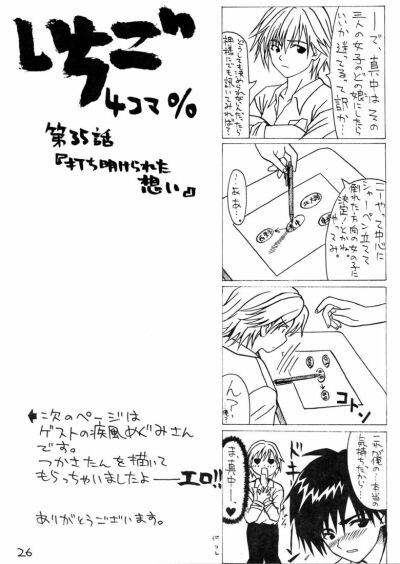 いちご
4コマ％
第35話
『打ち明けられた
想い』
ーで、真中はその
三人の女子のどの娘にしたら
いいか迷ってるって訳か…
どうしても決められないんだったら
神様にでも訊いてみれば？
こーやって中心に
シャーペン立てて
倒れた方向の女の子に
決定！とかね。
やってみ。
…ああ。
コトン
ん？
これが俺の…本当の
気持ちだから…
ドキ
ま、真中ー♥
←次のページは
ゲストの疾風めぐみさん
です。
つかさたんを描いて
もらっちゃいましたよーエロ!!
ありがとうございます。
26